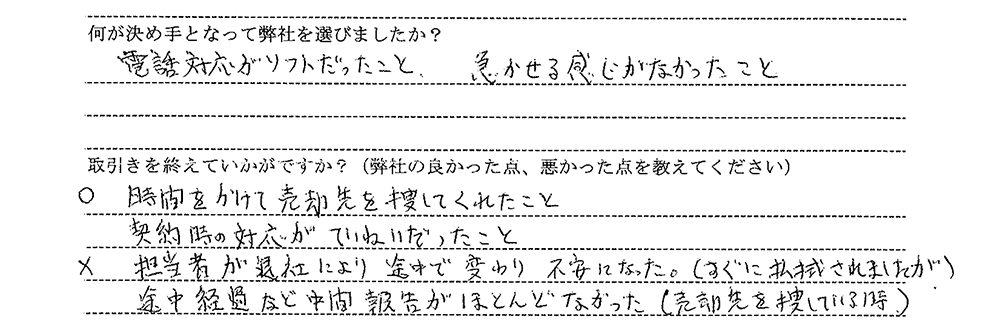 何が決め手となって弊社を選びましたか？
電話対応がソフトだったこと、 急かせる感じがなかったこと
取引きを終えていかがですか？（弊社の良かった点、悪かった点を教えてください）
○ 時間をかけて売却先を捜してくれたこと
契約時の対応がていねいだったこと
× 担当者が退社により途中で変わり不安になった。（すぐに払拭されましたが）
途中経過など中間報告がほとんどなかった（売却先を捜している時）